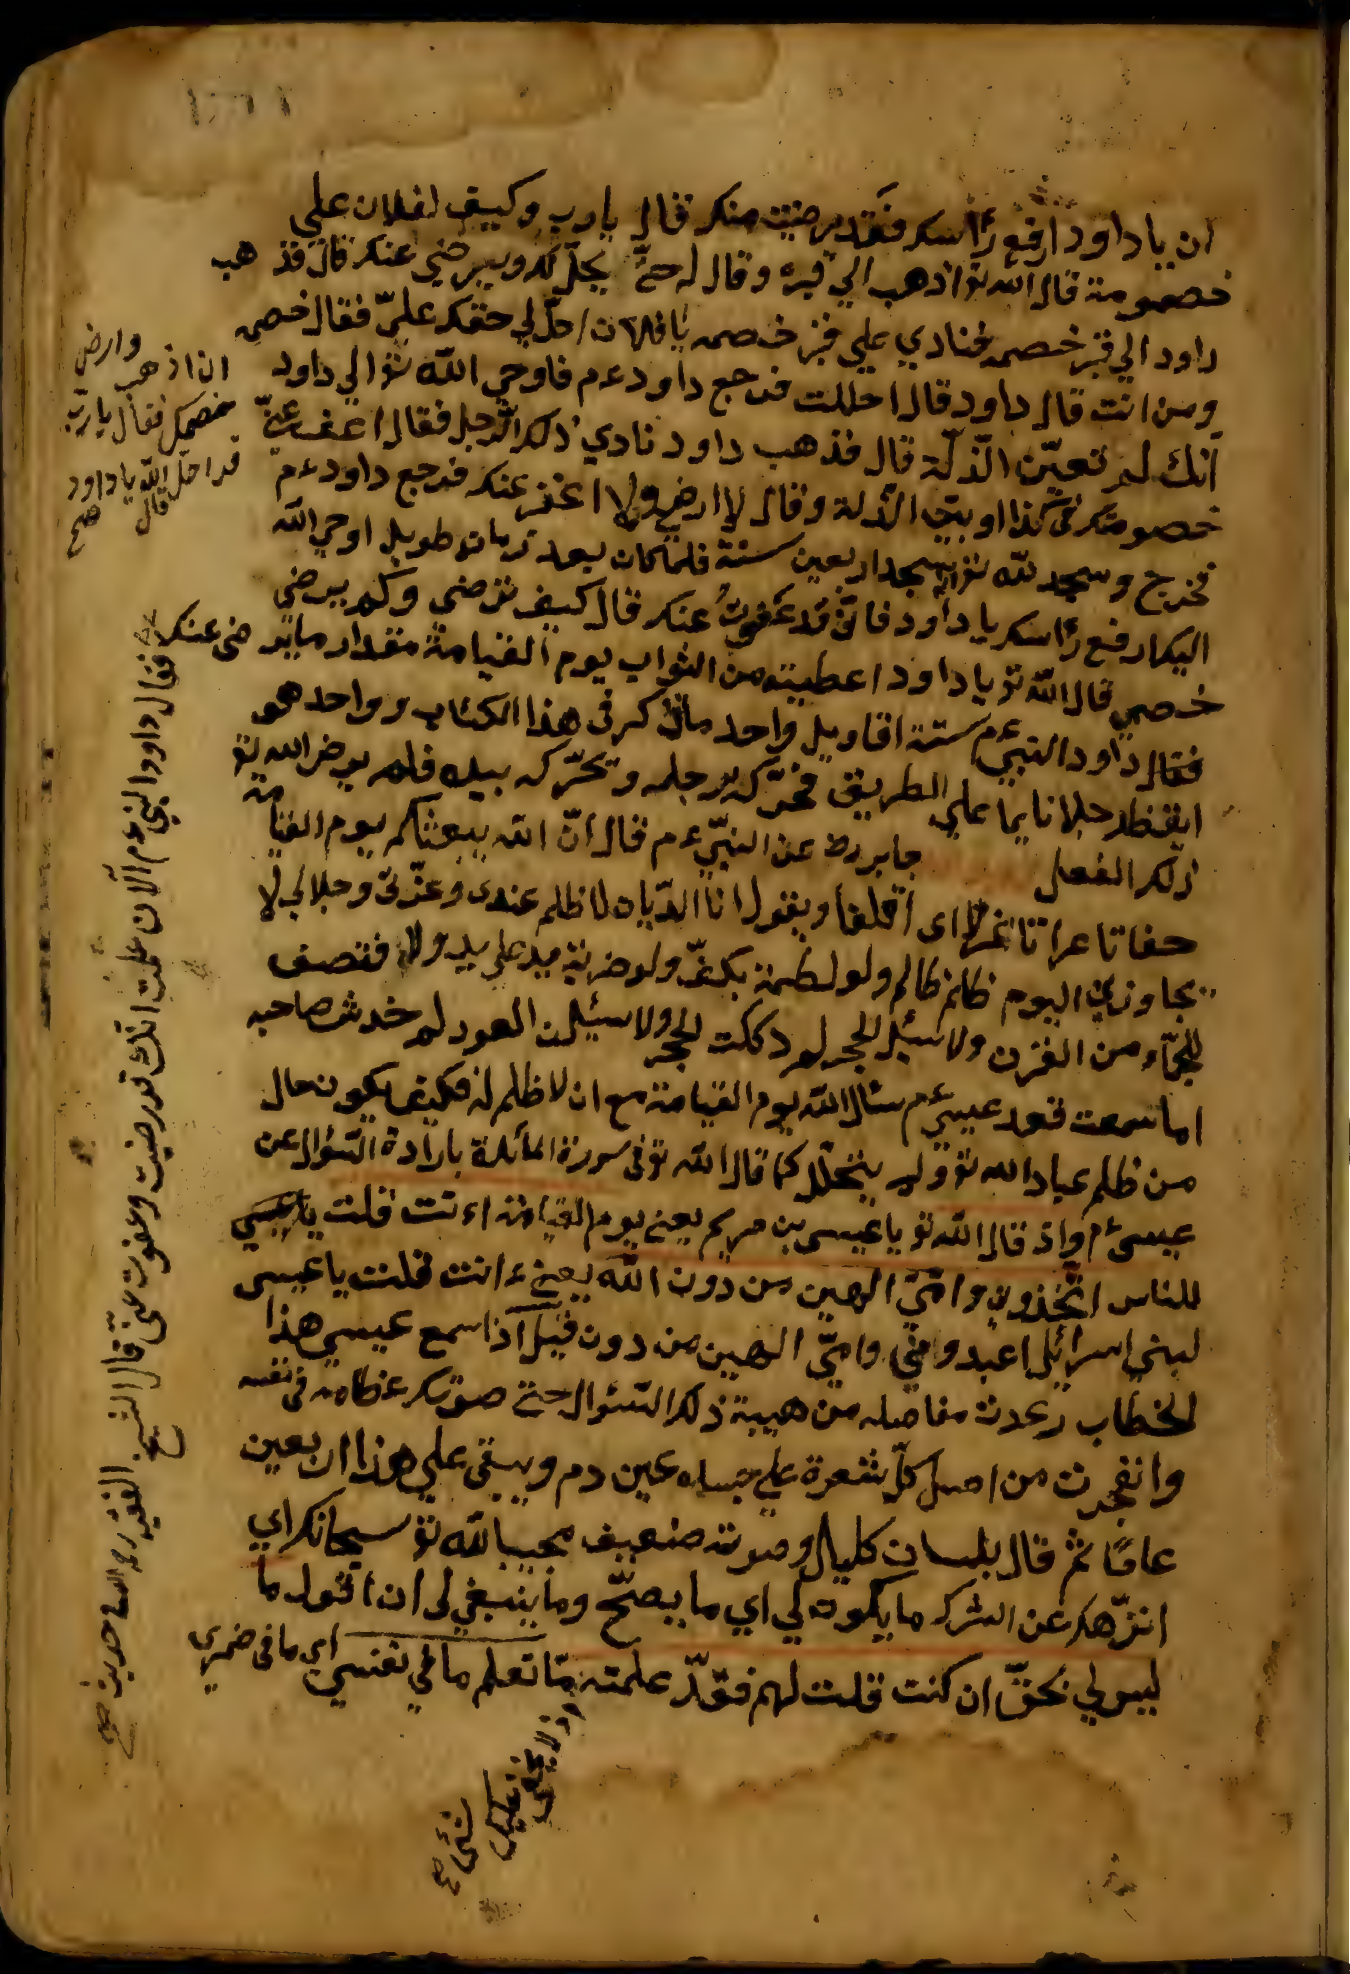 ان يا داود ارفع رأسك فقد رضيت منك قال يا رب وكيف لفلان علي
خصومة قال الله تع اذهب الي قبره وقال له حتّي يحلّ لك ويرضي عنك قال فذهب
داود الي قبر خصمه فنادي علي قبر خصمه يا فلان احلّ لي حقك عليّ فقال خصمي
ومن انت قال داود قال احللت فرجع داود عم فاوحي الله تع الي داود
انك لم تعيّن الذّلة قال فذهب داود نادي ذلك الرّجل فقال اعف عنّي
خصومتك في كذا وبيّن الذّلة وقال لا ارضي ولا اغفر عنك فرجع داود عم
فخرج وسجد لله تع سجد اربعين سنة فلما كان بعد زمان طويل اوحي الله
اليه ارفع رأسك يا داود فانّي قد عفوت عنك قال كيف ترضي ولم يرضي
خصمي قال الله تع يا داود اعطيته من الثواب يوم القيامة مقدار ما يرضي عنك
فقال داود النبي عم ستة اقاويل واحد ما ذكر في هذا الكتاب وواحد هو
ايقظ رجلا نايما علي الطريق فحرّكه برجله وتحرّكه بيده فلم يرض الله تع
ذلك الفعل جابر رض عن النبّي عم قال انّ الله يبعثكم يوم القيامة
حفاتا عراتا غرلا اى اقلفا ويقول انا الدّيان لا ظلم عندى وعزّتى وجلالي لا
يجاوزني اليوم ظلم ظالم ولو لطمة بكفّ ولو ضربة يد علي يد ولا فتصف
للجمّاء من القرن ولاسئل الحجر لم دككت الحجر ولاسئلن العود لم خدش صاحبه
اما سمعت قعد عيسي عم سئال الله يوم القيامة مع ان لا ظلم له فكيف يكون حال
من ظلم عباد الله تع ولم يتحلّل كما قال الله تع فى سورة المائدة بارادة السّؤال عن
عيسي عم واذ قال الله تع يا عيسى بن مريم يعني يوم القيامة اءنت قلت يا عيسي
للناس اتّخذوني وامّي الهين من دون الله يعني ءانت قلت يا عيسى
لبني اسرائل اعبدوني وامّي الهين من دون قيل اذا سمع عيسي هذا
الخطاب رعدت مفاصله من هيبة ذلك السّئوال حتي صوّتت عظامه في نفسه
وانفجرت من اصل كلّ شعرة علي جسده عين دم ويبقي علي هذا اربعين
عاما ثم قال بلسان كليل وصوت ضعيف مجيبا لله تع سبحانك اي
انزّهك عن الشرك ما يكون لي اي ما يصحّ وما ينبغي لى ان اقول ما
ليس لي بحقّ ان كنت قلت لهم فقد علمته تعلم ما في نفسي اي ما في ضميري
وارضي
ان اذهب
خصمك فقال يا ربّ
قد احلّ قال الله يا داود
صح
فقال داود النبي عم الان علمت انك قد رضيت وعفوت عنّي قال الشيخ الفقيه رحمه الله
صح